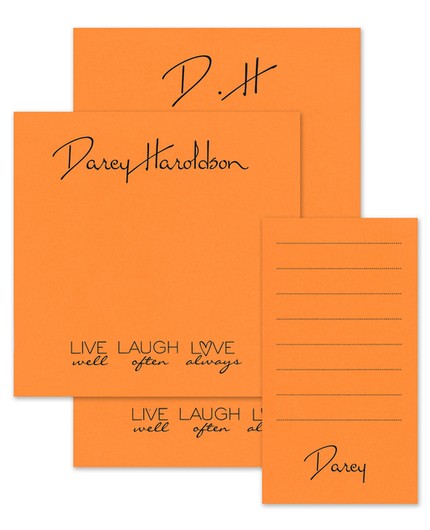 D.H
Darcy Haroldson
LIVE LAUGH LOVE
well often always
LIVE LAUGH
well often
Darcy